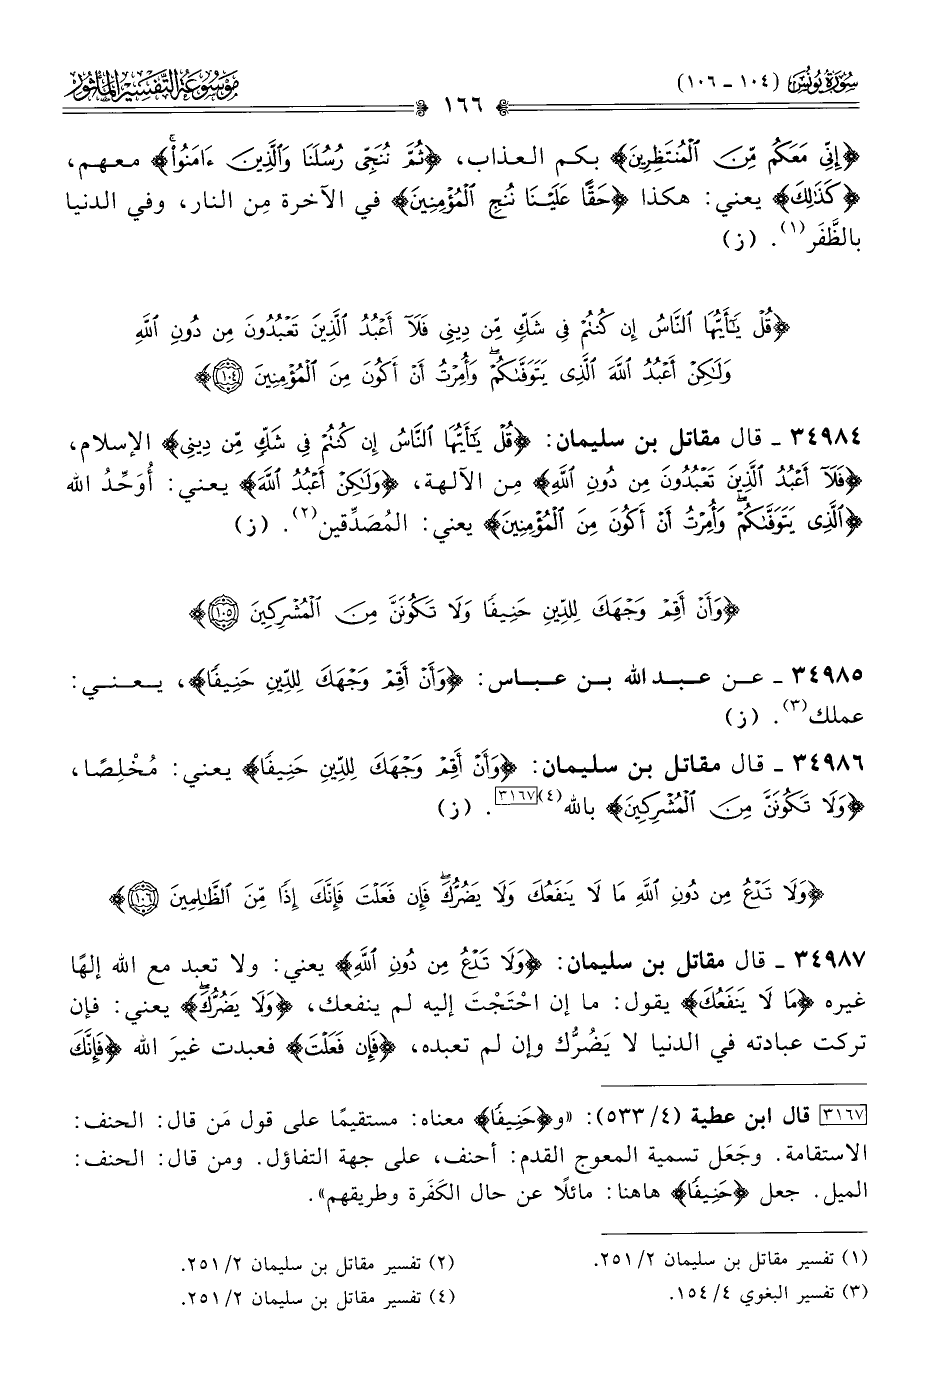 سُورَةُ يُونُسَ (١٠٤ - ١٠٦)
١٦٦
مَوْسُوعَةُ التَّفْسِيرِ المَأْثُورِ
﴿إِنِّى مَعَكُم مِّنَ ٱلْمُنتَظِرِينَ﴾ بكم العذاب، ﴿ثُمَّ نُنَجِّى رُسُلَنَا وَٱلَّذِينَ ءَامَنُوا۟ۚ﴾ معهم،
﴿كَذَٰلِكَ﴾ يعني: هكذا ﴿حَقًّا عَلَيْنَا نُنجِ ٱلْمُؤْمِنِينَ﴾ في الآخرة مِن النار، وفي الدنيا
بالظَّفَر(١). (ز)
﴿قُلْ يَٰٓأَيُّهَا ٱلنَّاسُ إِن كُنتُمْ فِى شَكٍّ مِّن دِينِى فَلَآ أَعْبُدُ ٱلَّذِينَ تَعْبُدُونَ مِن دُونِ ٱللَّهِ
وَلَٰكِنْ أَعْبُدُ ٱللَّهَ ٱلَّذِى يَتَوَفَّىٰكُمْۖ وَأُمِرْتُ أَنْ أَكُونَ مِنَ ٱلْمُؤْمِنِينَ ١٠٤﴾
٣٤٩٨٤ - قال مقاتل بن سليمان: ﴿قُلْ يَٰٓأَيُّهَا ٱلنَّاسُ إِن كُنتُمْ فِى شَكٍّ مِّن دِينِى﴾ الإسلام،
﴿فَلَآ أَعْبُدُ ٱلَّذِينَ تَعْبُدُونَ مِن دُونِ ٱللَّهِ﴾ مِن الآلهة، ﴿وَلَٰكِنْ أَعْبُدُ ٱللَّهَ﴾ يعني: أُوَحِّدُ الله
﴿ٱلَّذِى يَتَوَفَّىٰكُمْۖ وَأُمِرْتُ أَنْ أَكُونَ مِنَ ٱلْمُؤْمِنِينَ﴾ يعني: المُصَدِّقين(٢). (ز)
﴿وَأَنْ أَقِمْ وَجْهَكَ لِلدِّينِ حَنِيفًا وَلَا تَكُونَنَّ مِنَ ٱلْمُشْرِكِينَ ١٠٥﴾
٣٤٩٨٥ - عن عبد الله بن عباس: ﴿وَأَنْ أَقِمْ وَجْهَكَ لِلدِّينِ حَنِيفًا﴾، يعني:
عملك(٣). (ز)
٣٤٩٨٦ - قال مقاتل بن سليمان: ﴿وَأَنْ أَقِمْ وَجْهَكَ لِلدِّينِ حَنِيفًا﴾ يعني: مُخْلِصًا،
﴿وَلَا تَكُونَنَّ مِنَ ٱلْمُشْرِكِينَ﴾ بالله(٤)[٣١٦٧]. (ز)
﴿وَلَا تَدْعُ مِن دُونِ ٱللَّهِ مَا لَا يَنفَعُكَ وَلَا يَضُرُّكَۖ فَإِن فَعَلْتَ فَإِنَّكَ إِذًا مِّنَ ٱلظَّٰلِمِينَ ١٠٦﴾
٣٤٩٨٧ - قال مقاتل بن سليمان: ﴿وَلَا تَدْعُ مِن دُونِ ٱللَّهِ﴾ يعني: ولا تعبد مع الله إلهًا
غيره ﴿مَا لَا يَنفَعُكَ﴾ يقول: ما إن احْتَجْتَ إليه لم ينفعك، ﴿وَلَا يَضُرُّكَۖ﴾ يعني: فإن
تركت عبادته في الدنيا لا يَضُرُّك وإن لم تعبده، ﴿فَإِن فَعَلْتَ﴾ فعبدت غيرَ الله ﴿فَإِنَّكَ
[٣١٦٧] قال ابن عطية (٤/ ٥٣٣): «و﴿حَنِيفًا﴾ معناه: مستقيمًا على قول مَن قال: الحنف:
الاستقامة. وجَعَل تسمية المعوج القدم: أحنف، على جهة التفاؤل. ومن قال: الحنف:
الميل. جعل ﴿حَنِيفًا﴾ هاهنا: مائلًا عن حال الكَفَرة وطريقهم».
(١) تفسير مقاتل بن سليمان ٢/ ٢٥١.
(٢) تفسير مقاتل بن سليمان ٢/ ٢٥١.
(٣) تفسير البغوي ٤/ ١٥٤.
(٤) تفسير مقاتل بن سليمان ٢/ ٢٥١.